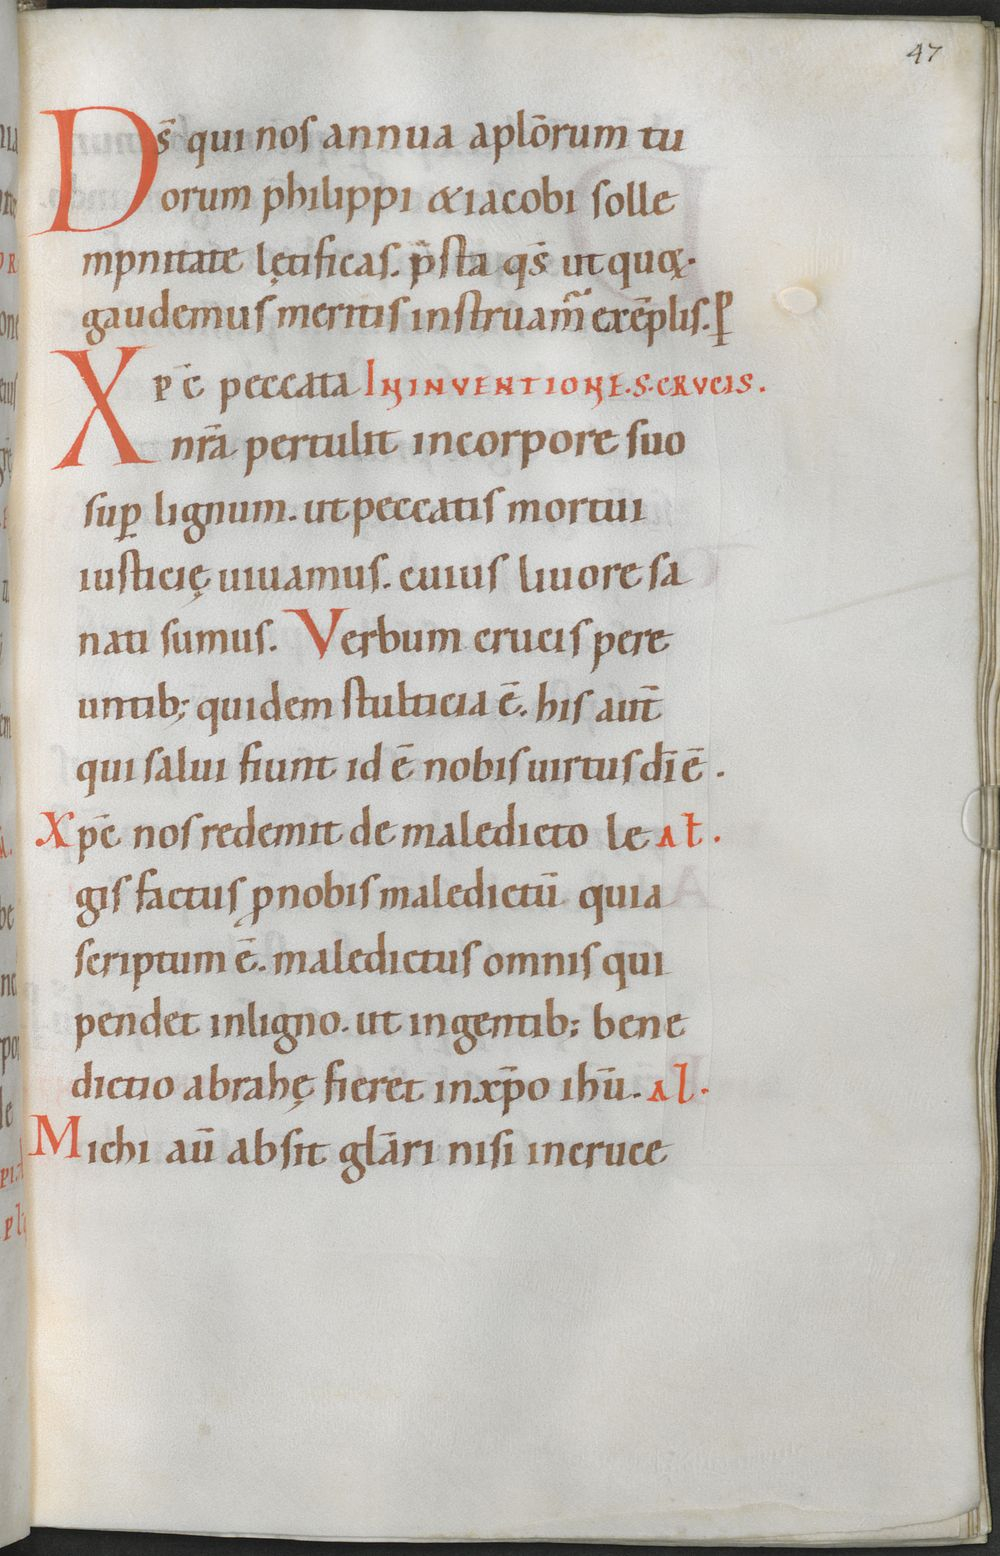 47
Ds̄ qui nos annua aplōrum tu
orum philippi & iacobi solle
mpnitate lętificas. p̄sta qs̄ ut quoꝝ
gaudemus meritis instruam̃ exēplis. ꝑ
Xp̄c peccata IN INVENTIONE. S. CRVCIS.
nr̄a pertulit in corpore suo
suꝑ lignum. ut peccatis mortui
iusticię uiuamus. cuius liuore sa
nati sumus. Verbum crucis pere
untib; quidem stulticia ē. his aut̄
qui salui fiunt id ē nobis uirtus dī ē.
Xp̄c nos redemit de maledicto le Al̄.
gis factus ꝓ nobis maledictū quia
scriptum ē. maledictus omnis qui
pendet in ligno. ut in gentib; bene
dictio abrahę fieret in xp̄o ihū. Al.
Michi aū absit glāri nisi in cruce